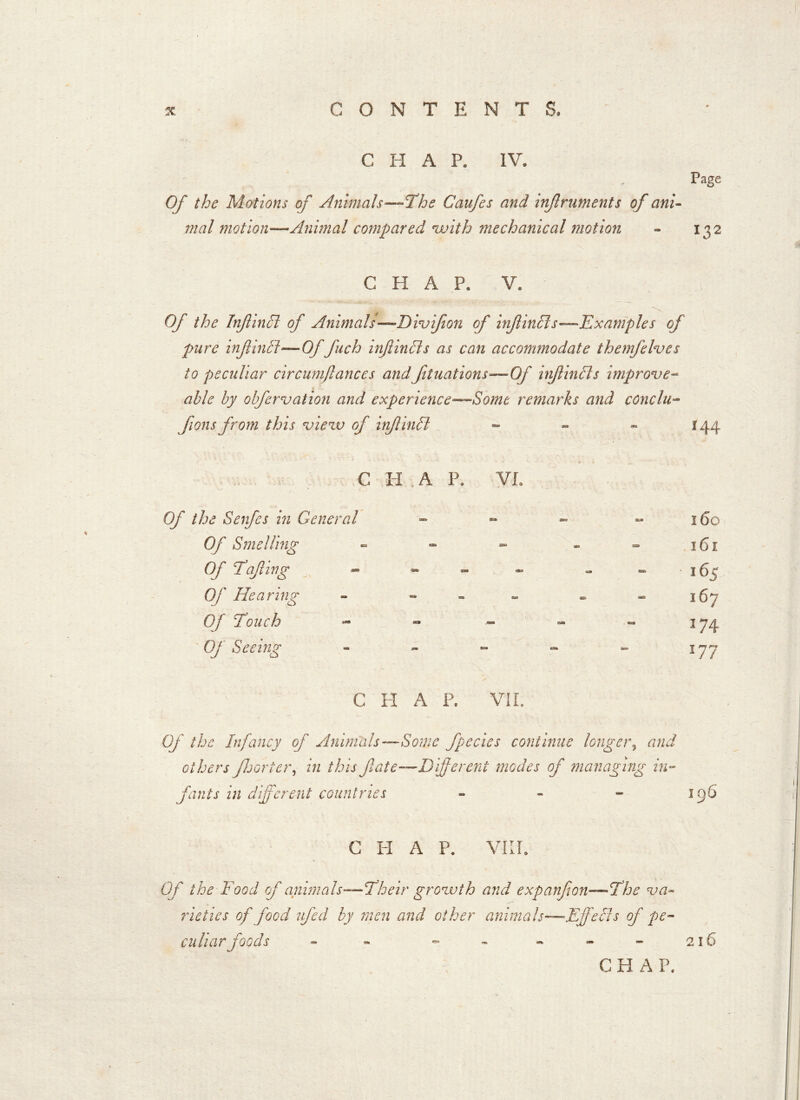 x CONTENTS.
CHAP. IV.
Page
Of the Motions of Animals—The Cauſes and inſtruments of ani-
mal motion—Animal compared with mechanical motion - 132
CHAP. V.
Of the Inſtinct of Animals—Diviſion of inſtincts—Examples of
pure inſtinct—Of ſuch inſtincts as can accommodate themſelves
to peculiar circumſtances and ſituations—Of inſtincts improve-
able by obſervation and experience—Some remarks and conclu-
ſions from this view of inſtinct - - - 144
CHAP. VI.
Of the Senſes in General - - - - 160
Of Smelling - - - - - 161
Of Taſting - - - - - - 165
Of Hearing - - - - - - 167
Of Touch - - - - - 174
Of Seeing - - - - - 177
CHAP. VII.
Of the Infancy of Animals—Some ſpecies continue longer, and
others ſhorter, in this ſtate—Different modes of managing in-
fants in different countries - - - 196
CHAP. VIII.
Of the Food of animals—Their growth and expanſion—The va-
rieties of food uſed by men and other animals—Effects of pe-
culiar foods - - - - - - - 216
CHAP.